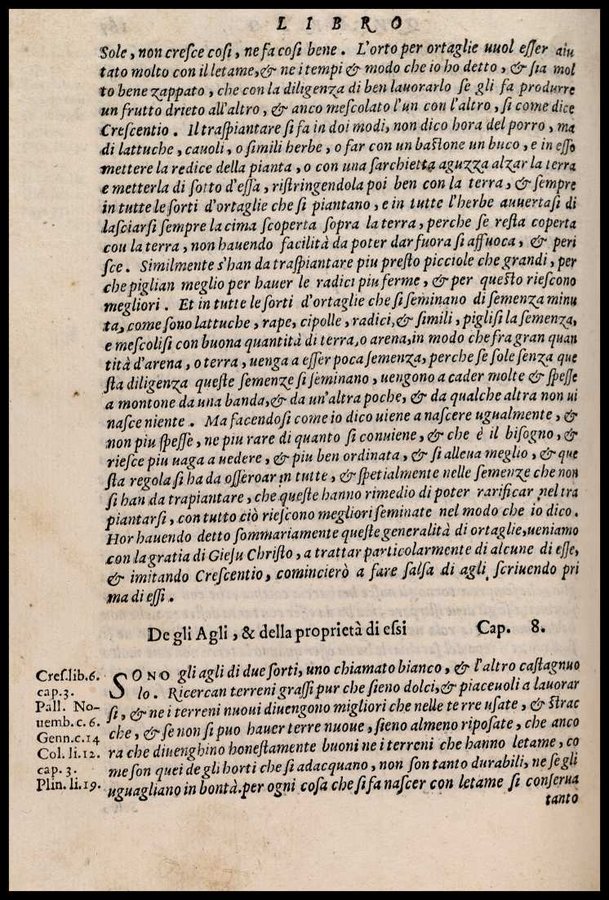 LIBRO
Sole, non cresce così, ne fa così bene. L'orto per ortaglie uuol esser aiu
tato molto con il letame, & ne i tempi & modo che io ho detto, & sia mol
to bene zappato, che con la diligenza di ben lauorarlo se gli fa produrre
un frutto drieto all'altro, & anco mescolato l'un con l'altro, si come dice
Crescentio. Il traspiantare si fa in doi modi, non dico hora del porro, ma
di lattuche, cauoli, o simili herbe, o far con un bastone un buco, e in esso
mettere la redice della pianta, o con una sarchietta aguzza alzar la terra
e metterla di sotto d'essa, ristringendola poi ben con la terra, & sempre
in tutte le sorti d'ortaglie che si piantano, e in tutte l'herbe auuertasi di
lasciarsi sempre la cima scoperta sopra la terra, perche se resta coperta
cou la terra, non hauendo facilità da poter dar fuora si affuoca, & peri
sce. Similmente s'han da traspiantare piu presto picciole che grandi, per
che piglian meglio per hauer le radici piu ferme, & per questo riescono
megliori. Et in tutte le sorti d'ortaglie che si seminano di semenza minu
ta, come sono lattuche, rape, cipolle, radici, & simili, piglisi la semenza,
e mescolisi con buona quantità di terra, o arena, in modo che fra gran quan
tità d'arena, o terra, uenga a esser poca semenza, perche se sole senza que
sta diligenza queste semenze si seminano, uengono a cader molte & spesse
a montone da una banda, & da un'altra poche, & da qualche altra non ui
nasce niente. Ma facendosi come io dico uiene a nascere ugualmente, &
non piu spesse, ne piu rare di quanto si conuiene, & che è il bisogno, &
riesce piu uaga a uedere, & piu ben ordinata, & si alleua meglio, & que
sta regola si ha da osseroar in tutte, & spetialmente nelle semenze che non
si han da trapiantare, che queste hanno rimedio di poter rarificar nel tra
piantarsi, con tutto ciò riescono megliori seminate nel modo che io dico.
Hor hauendo detto sommariamente queste generalità di ortaglie, ueniamo
con la gratia di Giesu Christo, a trattar particolarmente di alcune di esse,
& imitando Crescentio, comincierò a fare salsa di agli scriuendo pri
ma di essi.
De gli Agli, & della proprietà di essi Cap. 8.
Cres. lib. 6.
cap. 3.
Pall. No-
uemb. c. 6.
Genn. c. 14
Col. li. 12.
cap. 3.
Plin. li. 19.
SONO gli agli di due sorti, uno chiamato bianco, & l'altro castagnuo
lo. Ricercan terreni grassi pur che sieno dolci, & piaceuoli a lauorar
si, & ne i terreni nuoui diuengono migliori che nelle terre usate, & strac
che, & se non si puo hauer terre nuoue, sieno almeno riposate, che anco
ra che diuenghino honestamente buoni ne i terreni che hanno letame, co
me son quei de gli horti che si adacquano, non son tanto durabili, ne se gli
uguagliano in bontà. per ogni cosa che si fa nascer con letame si conserua
tanto